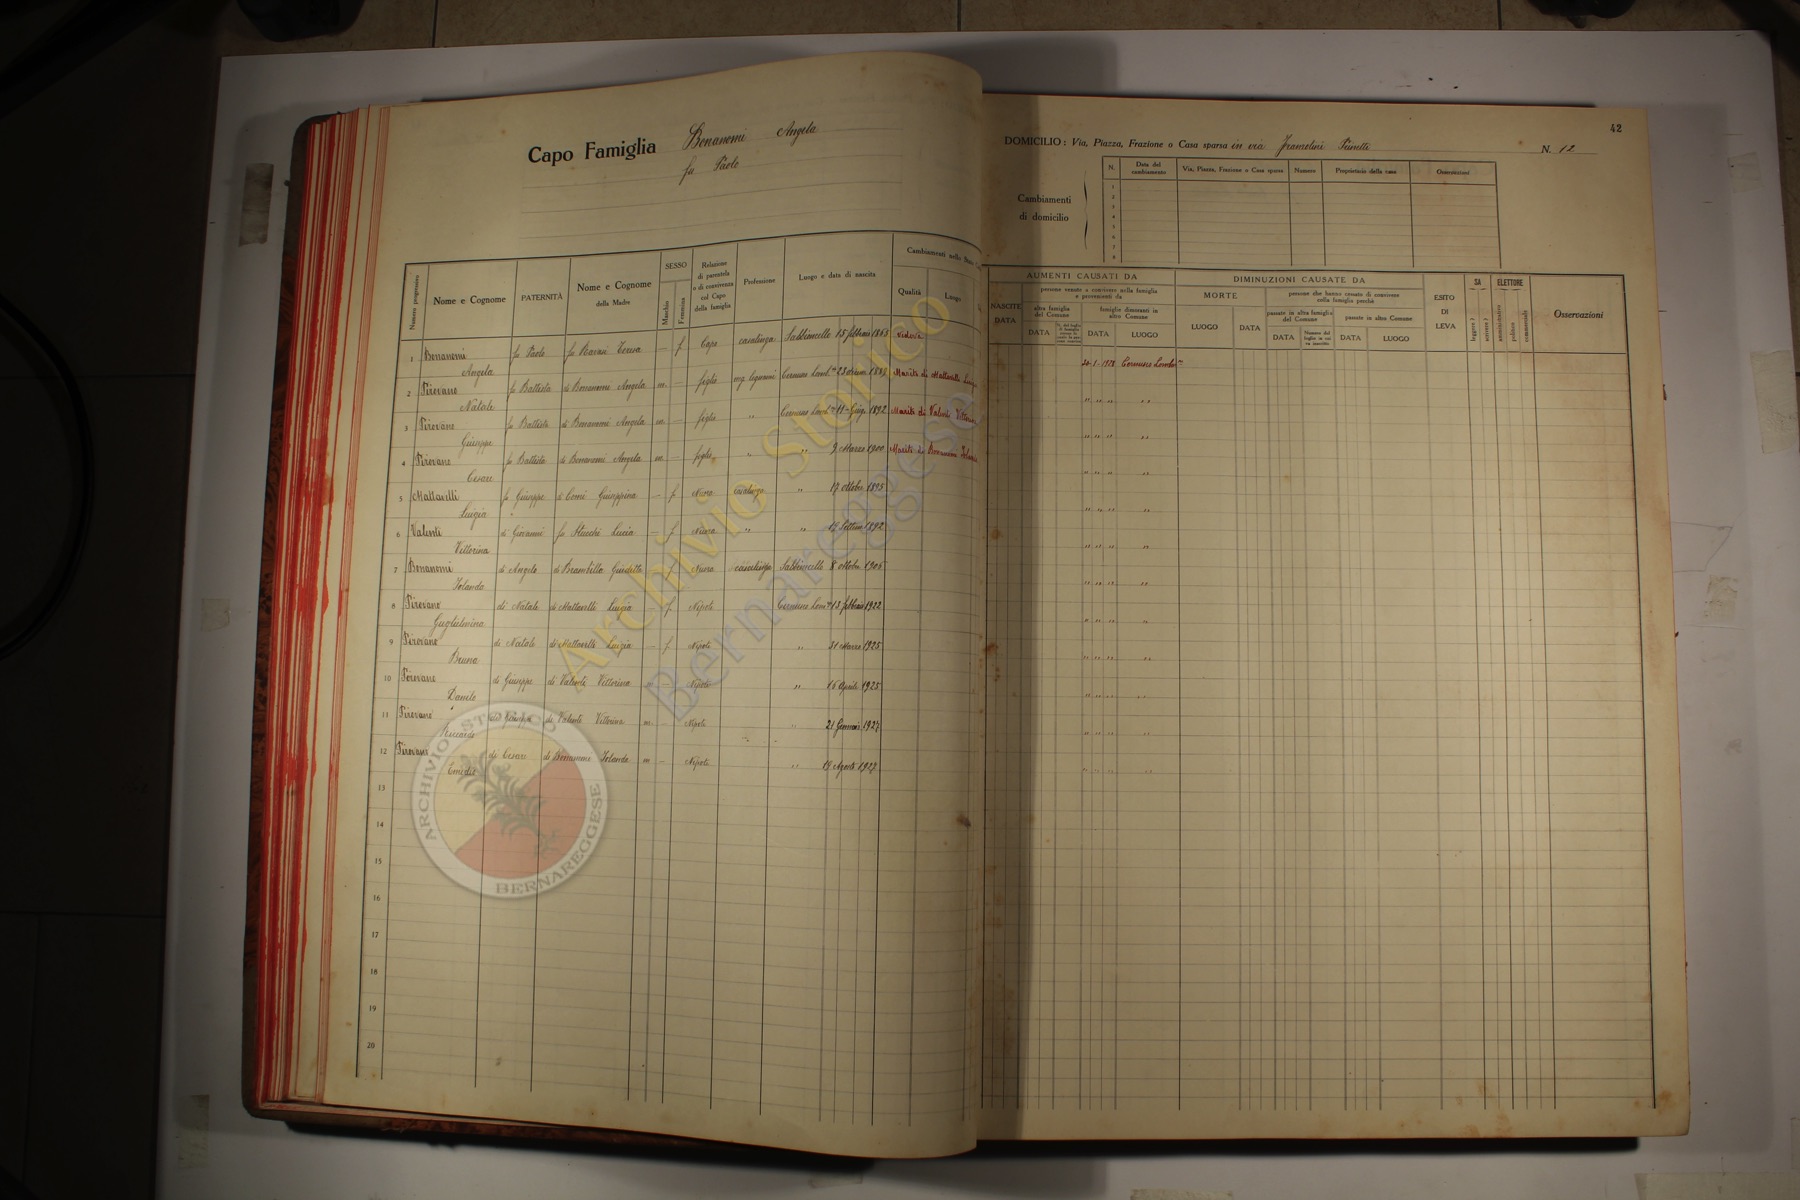 Capo Famiglia Bonanomi Angela
fu Paolo
Numero progressivo
Nome e Cognome
PATERNITÀ
Nome e Cognome della Madre
SESSO
Maschio
Femmina
Relazione di parentela o di convivenza col Capo della famiglia
Professione
Luogo e data di nascita
Cambiamenti nello
Qualità
Luogo
1 Bonanomi Angela fu Paolo fu Teresa — f Capo casalinga Sabbioncello 15 febbraio 1863 Vedova
2 Pirovano Natale fu Battista di Bonanomi Angela m. — figlio neg. legnami Cernusco Lomb. 23 1889 Marito di Mattavelli Luigia
3 Pirovano Giuseppe fu Battista di Bonanomi Angela m. — figlio " Cernusco Lomb. 11 Giug. 1892 Marito di Valenti Vittorina
4 Pirovano Cesare fu Battista di Bonanomi Angela m — figlio " " 9 Marzo 1900 Marito di Bonanomi Jolanda
5 Mattavelli Luigia fu Giuseppe di Comi Giuseppina — f Nuora casalinga " 17 ottobre 1895
6 Valenti Vittorina di Giovanni fu Stucchi Lucia — f Nuora " " 19 Settem 1892
7 Bonanomi Jolanda di Angelo di Brambilla Giuditta f Nuora casalinga Sabbioncello 8 ottobre 1905
8 Pirovano Guglielmina di Natale di Mattavelli Luigia f. Nipote Cernusco Lom. 13 febbraio 1922
9 Pirovano Bruna di Natale di Mattavelli Luigia — f. Nipote " 31 Marzo 1925
10 Pirovano Danilo di Giuseppe di Valenti Vittorina m — Nipote " 16 Aprile 1925
11 Pirovano Riccardo di Giuseppe di Valenti Vittorina m. — Nipote " 21 Gennaio 1927
12 Pirovano di Cesare di Bonanomi Jolanda m — Nipote " 19 Agosto 1927
13
14
15
16
17
18
19
20
42
DOMICILIO : Via, Piazza, Frazione o Casa sparsa in via N. 12
Cambiamenti di domicilio
N.
Data del cambiamento
Via, Piazza, Frazione o Casa sparsa
Numero
Proprietario della casa
Osservazioni
1
2
3
4
5
6
7
8
AUMENTI CAUSATI DA
DIMINUZIONI CAUSATE DA
NASCITE DATA
persone venute a convivere nella famiglia e provenienti da
altra famiglia del Comune
famiglie dimoranti in altro Comune
DATA
DATA
LUOGO
MORTE
LUOGO
DATA
persone che hanno cessato di convivere colla famiglia perchè
passate in altra famiglia del Comune
passate in altro Comune
DATA
DATA
LUOGO
ESITO DI LEVA
SA
leggere ?
scrivere ?
ELETTORE
amministrativo
politico
commerciale
Osservazioni
20-1-1928 Cernusco Lombar
" " " "
" " " "
" " " "
" " " "
" " " "
" " " "
" " " "
" " " "
" " " "
" " " "
" " " "
Archivio Storico
Bernareggese
ARCHIVIO STORICO
BERNAREGGESE